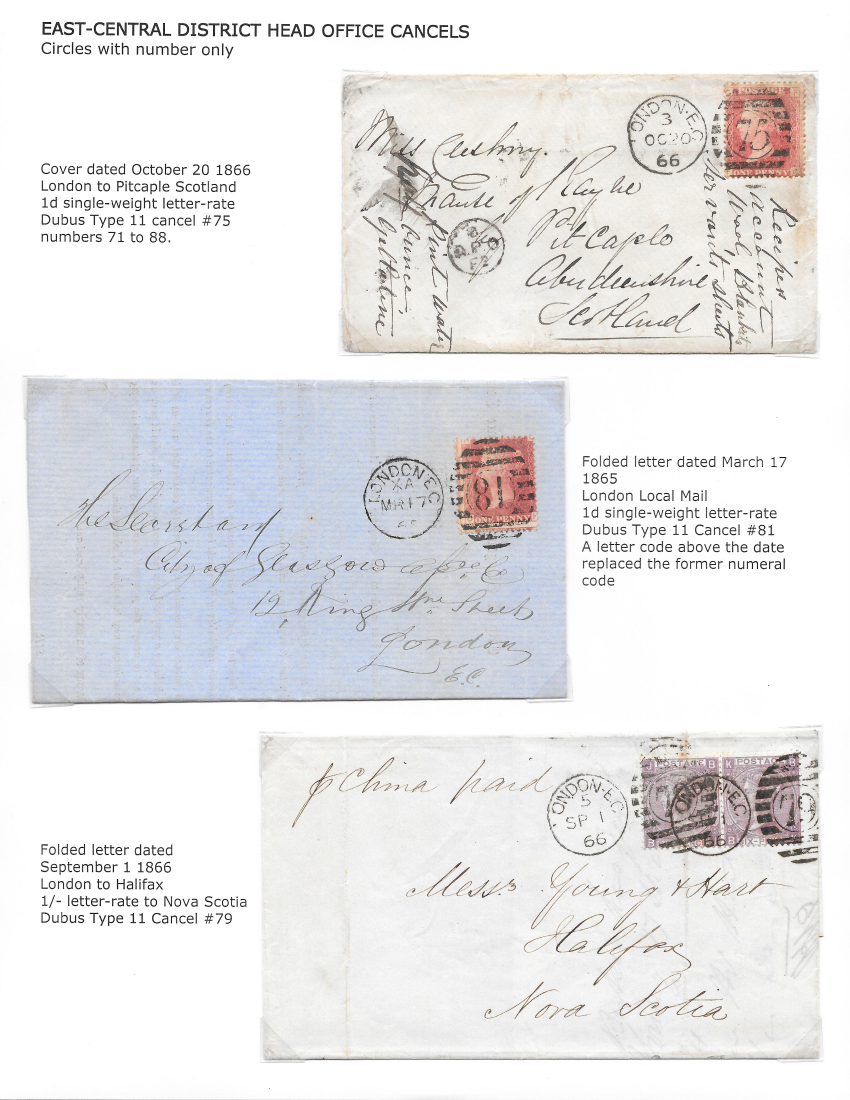 EAST-CENTRAL DISTRICT HEAD OFFICE CANCELS
Circles with number only
Cover dated October 20 1866
London to Pitcaple Scotland
1d single-weight letter-rate
Dubus Type 11 cancel #75
numbers 71 to 88.
LONDON·E.C
3
OC 20
66
POSTAGE
75
ONE PENNY
Miss
of Rayne
Pitcaple
Aberdeenshire
Scotland
Recipes
account
Wool Blankets
Servants sheets
Pint water
ounce
Gelatine
LONDON·E.C
XA
MR 17
81
ONE PENNY
The Secretary
City of Glasgow
12 King Wm Street
London
E.C.
Folded letter dated March 17
1865
London Local Mail
1d single-weight letter-rate
Dubus Type 11 Cancel #81
A letter code above the date
replaced the former numeral
code
Folded letter dated
September 1 1866
London to Halifax
1/- letter-rate to Nova Scotia
Dubus Type 11 Cancel #79
p China paid
LONDON·E.C
5
SP 1
66
J POSTAGE B
K POSTAGE B
LONDON·E.C
66
Messrs Young & Hart
Halifax
Nova Scotia